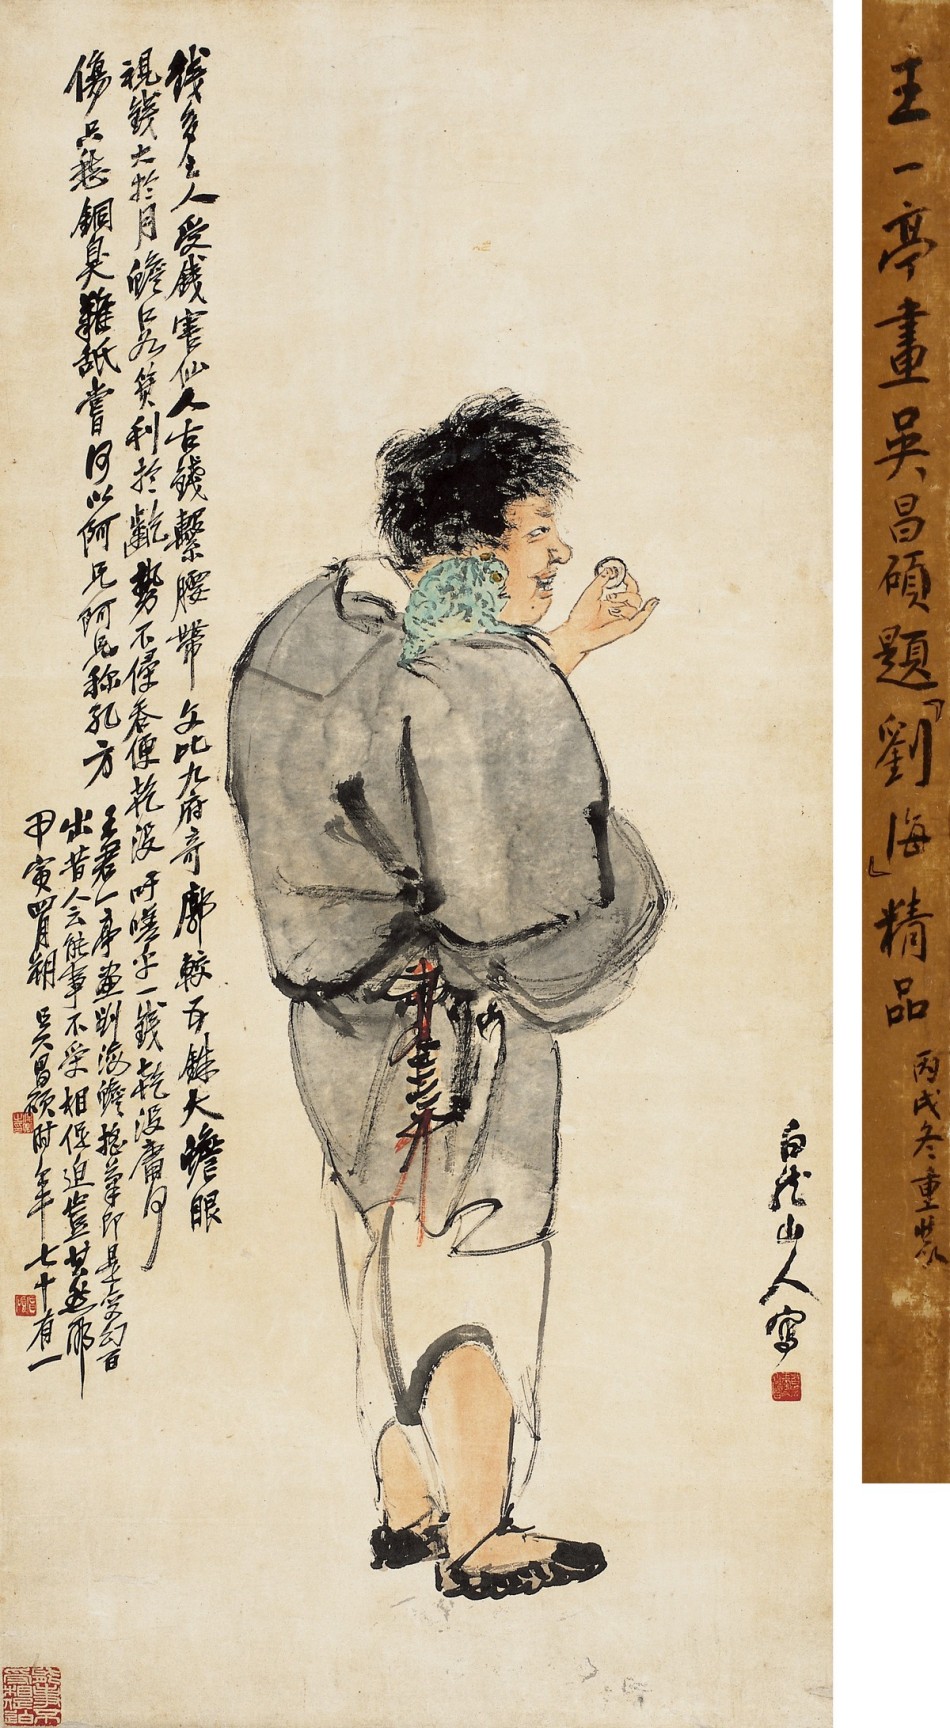 王一亭畫吳昌碩題「劉海」精品
丙戌冬重裝
白龍山人寫
錢多世人受錢害仙人古錢繫腰帶文比九府奇廓較五銖大蟾眼
視錢大於月蟾口如箕利於齕勢不侵吞便乾沒吁嗟乎一錢乾沒庸何
傷只愁銅臭難舐嘗何以阿兄阿兄稱孔方
王君一亭畫劉海蟾搖筆即是變幻百
出昔人云能事不受相促迫豈其然耶
甲寅四月朔吳昌碩時年七十有一